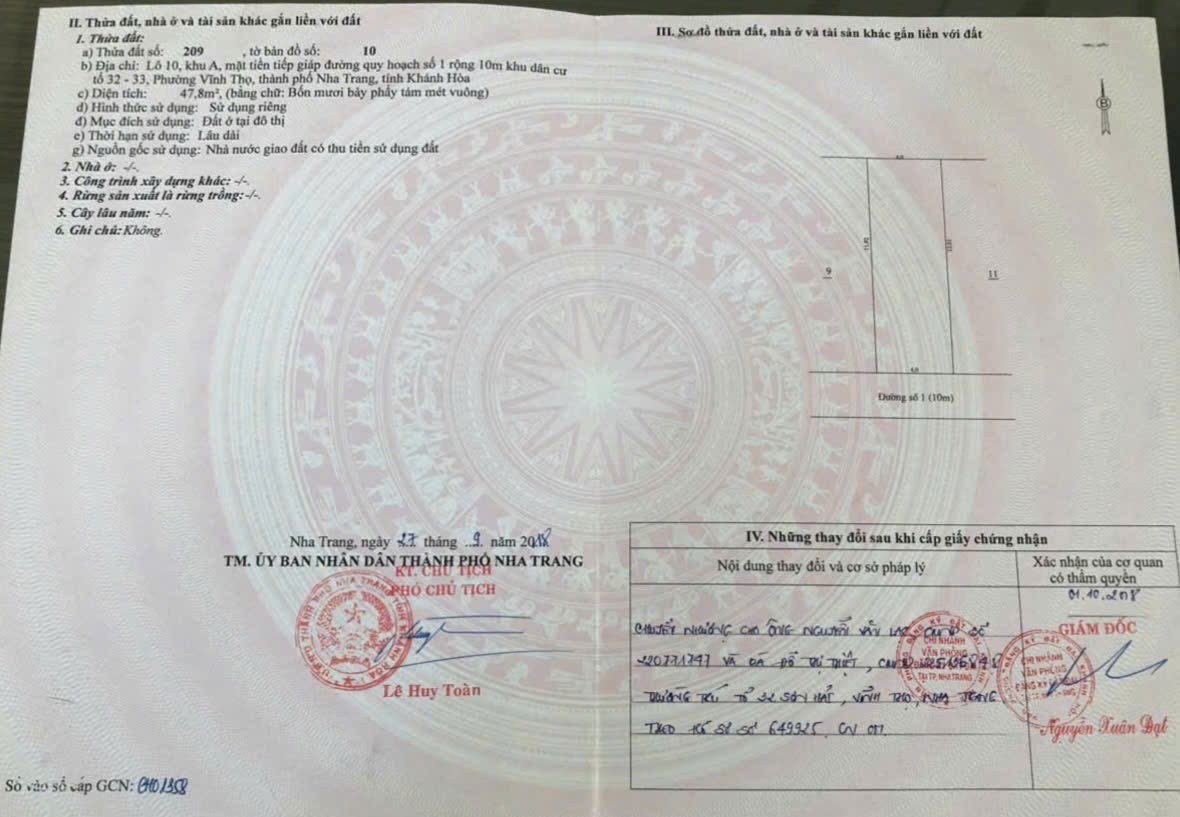 II. Thửa đất, nhà ở và tài sản khác gắn liền với đất
1. Thửa đất:
a) Thửa đất số: 209 , tờ bản đồ số: 10
b) Địa chỉ: Lô 10, khu A, mặt tiền tiếp giáp đường quy hoạch số 1 rộng 10m khu dân cư
tổ 32 - 33, Phường Vĩnh Thọ, thành phố Nha Trang, tỉnh Khánh Hòa
c) Diện tích: 47,8m², (bằng chữ: Bốn mươi bảy phẩy tám mét vuông)
d) Hình thức sử dụng: Sử dụng riêng
đ) Mục đích sử dụng: Đất ở tại đô thị
e) Thời hạn sử dụng: Lâu dài
g) Nguồn gốc sử dụng: Nhà nước giao đất có thu tiền sử dụng đất
2. Nhà ở: -/-.
3. Công trình xây dựng khác: -/-.
4. Rừng sản xuất là rừng trồng: -/-.
5. Cây lâu năm: -/-.
6. Ghi chú: Không.
Nha Trang, ngày 27 tháng 9 năm 2018
TM. ỦY BAN NHÂN DÂN THÀNH PHỐ NHA TRANG
KT. CHỦ TỊCH
PHÓ CHỦ TỊCH
Lê Huy Toàn
Số vào sổ cấp GCN: CH01358
III. Sơ đồ thửa đất, nhà ở và tài sản khác gắn liền với đất
B
4,0
9
11
4,0
Đường số 1 (10m)
IV. Những thay đổi sau khi cấp giấy chứng nhận
Nội dung thay đổi và cơ sở pháp lý
Xác nhận của cơ quan
có thẩm quyền
01.10.2018
CHUYỂN NHƯỢNG CHO ÔNG NGUYỄN VĂN SỐ
VÀ BÀ ĐỖ THỊ
THƯỜNG TRÚ TỔ 32 SƠN HẢI, VĨNH THỌ, NHA TRANG
THEO HỒ SƠ SỐ 649925. CN 011.
CHI NHÁNH
VĂN PHÒNG
TẠI TP. NHA TRANG
GIÁM ĐỐC
CHI NHÁNH
VĂN PHÒNG
Nguyễn Xuân Đạt